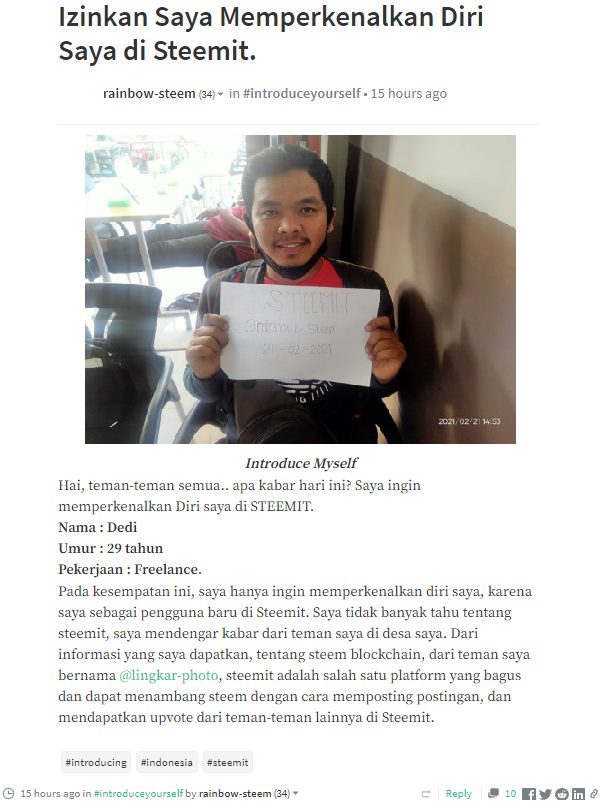 Izinkan Saya Memperkenalkan Diri
Saya di Steemit.
rainbow-steem (34) in #introduceyourself • 15 hours ago
STEEMIT
21-02-2021
2021/02/21 14:53
Introduce Myself
Hai, teman-teman semua.. apa kabar hari ini? Saya ingin
memperkenalkan Diri saya di STEEMIT.
Nama : Dedi
Umur : 29 tahun
Pekerjaan : Freelance.
Pada kesempatan ini, saya hanya ingin memperkenalkan diri saya, karena
saya sebagai pengguna baru di Steemit. Saya tidak banyak tahu tentang
steemit, saya mendengar kabar dari teman saya di desa saya. Dari
informasi yang saya dapatkan, tentang steem blockchain, dari teman saya
bernama @lingkar-photo, steemit adalah salah satu platform yang bagus
dan dapat menambang steem dengan cara memposting postingan, dan
mendapatkan upvote dari teman-teman lainnya di Steemit.
#introducing #indonesia #steemit
15 hours ago in #introduceyourself by rainbow-steem (34) Reply 10